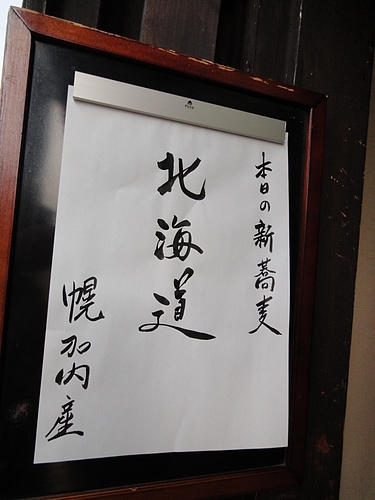 本日の新蕎麦
北海道
幌加内産